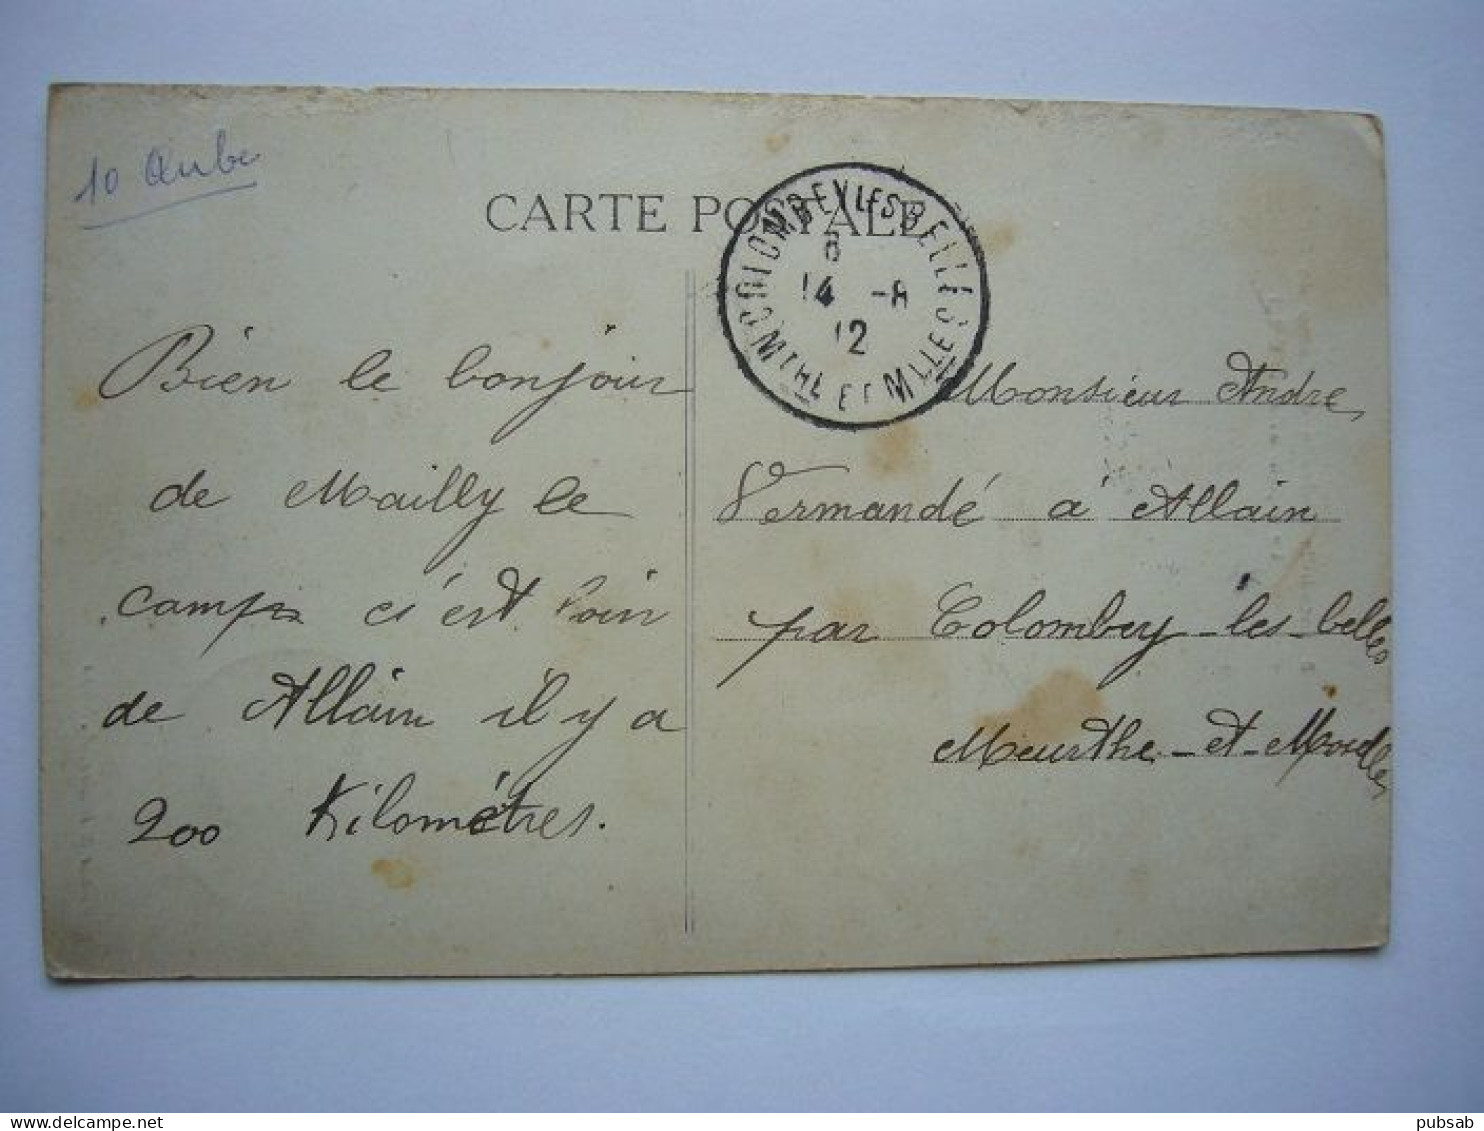 10 Aube
CARTE POSTALE
COLOMBEY LES BELLES
8
14 -8
12
MTHE ET MLLE
Bien le bonjour
de Mailly le
camp c'est loin
de Allain il y a
200 Kilomètres.
Monsieur Andre
Vermandé à Allain
par Colombey-les-belles
Meurthe-et-Moselle
pubsab